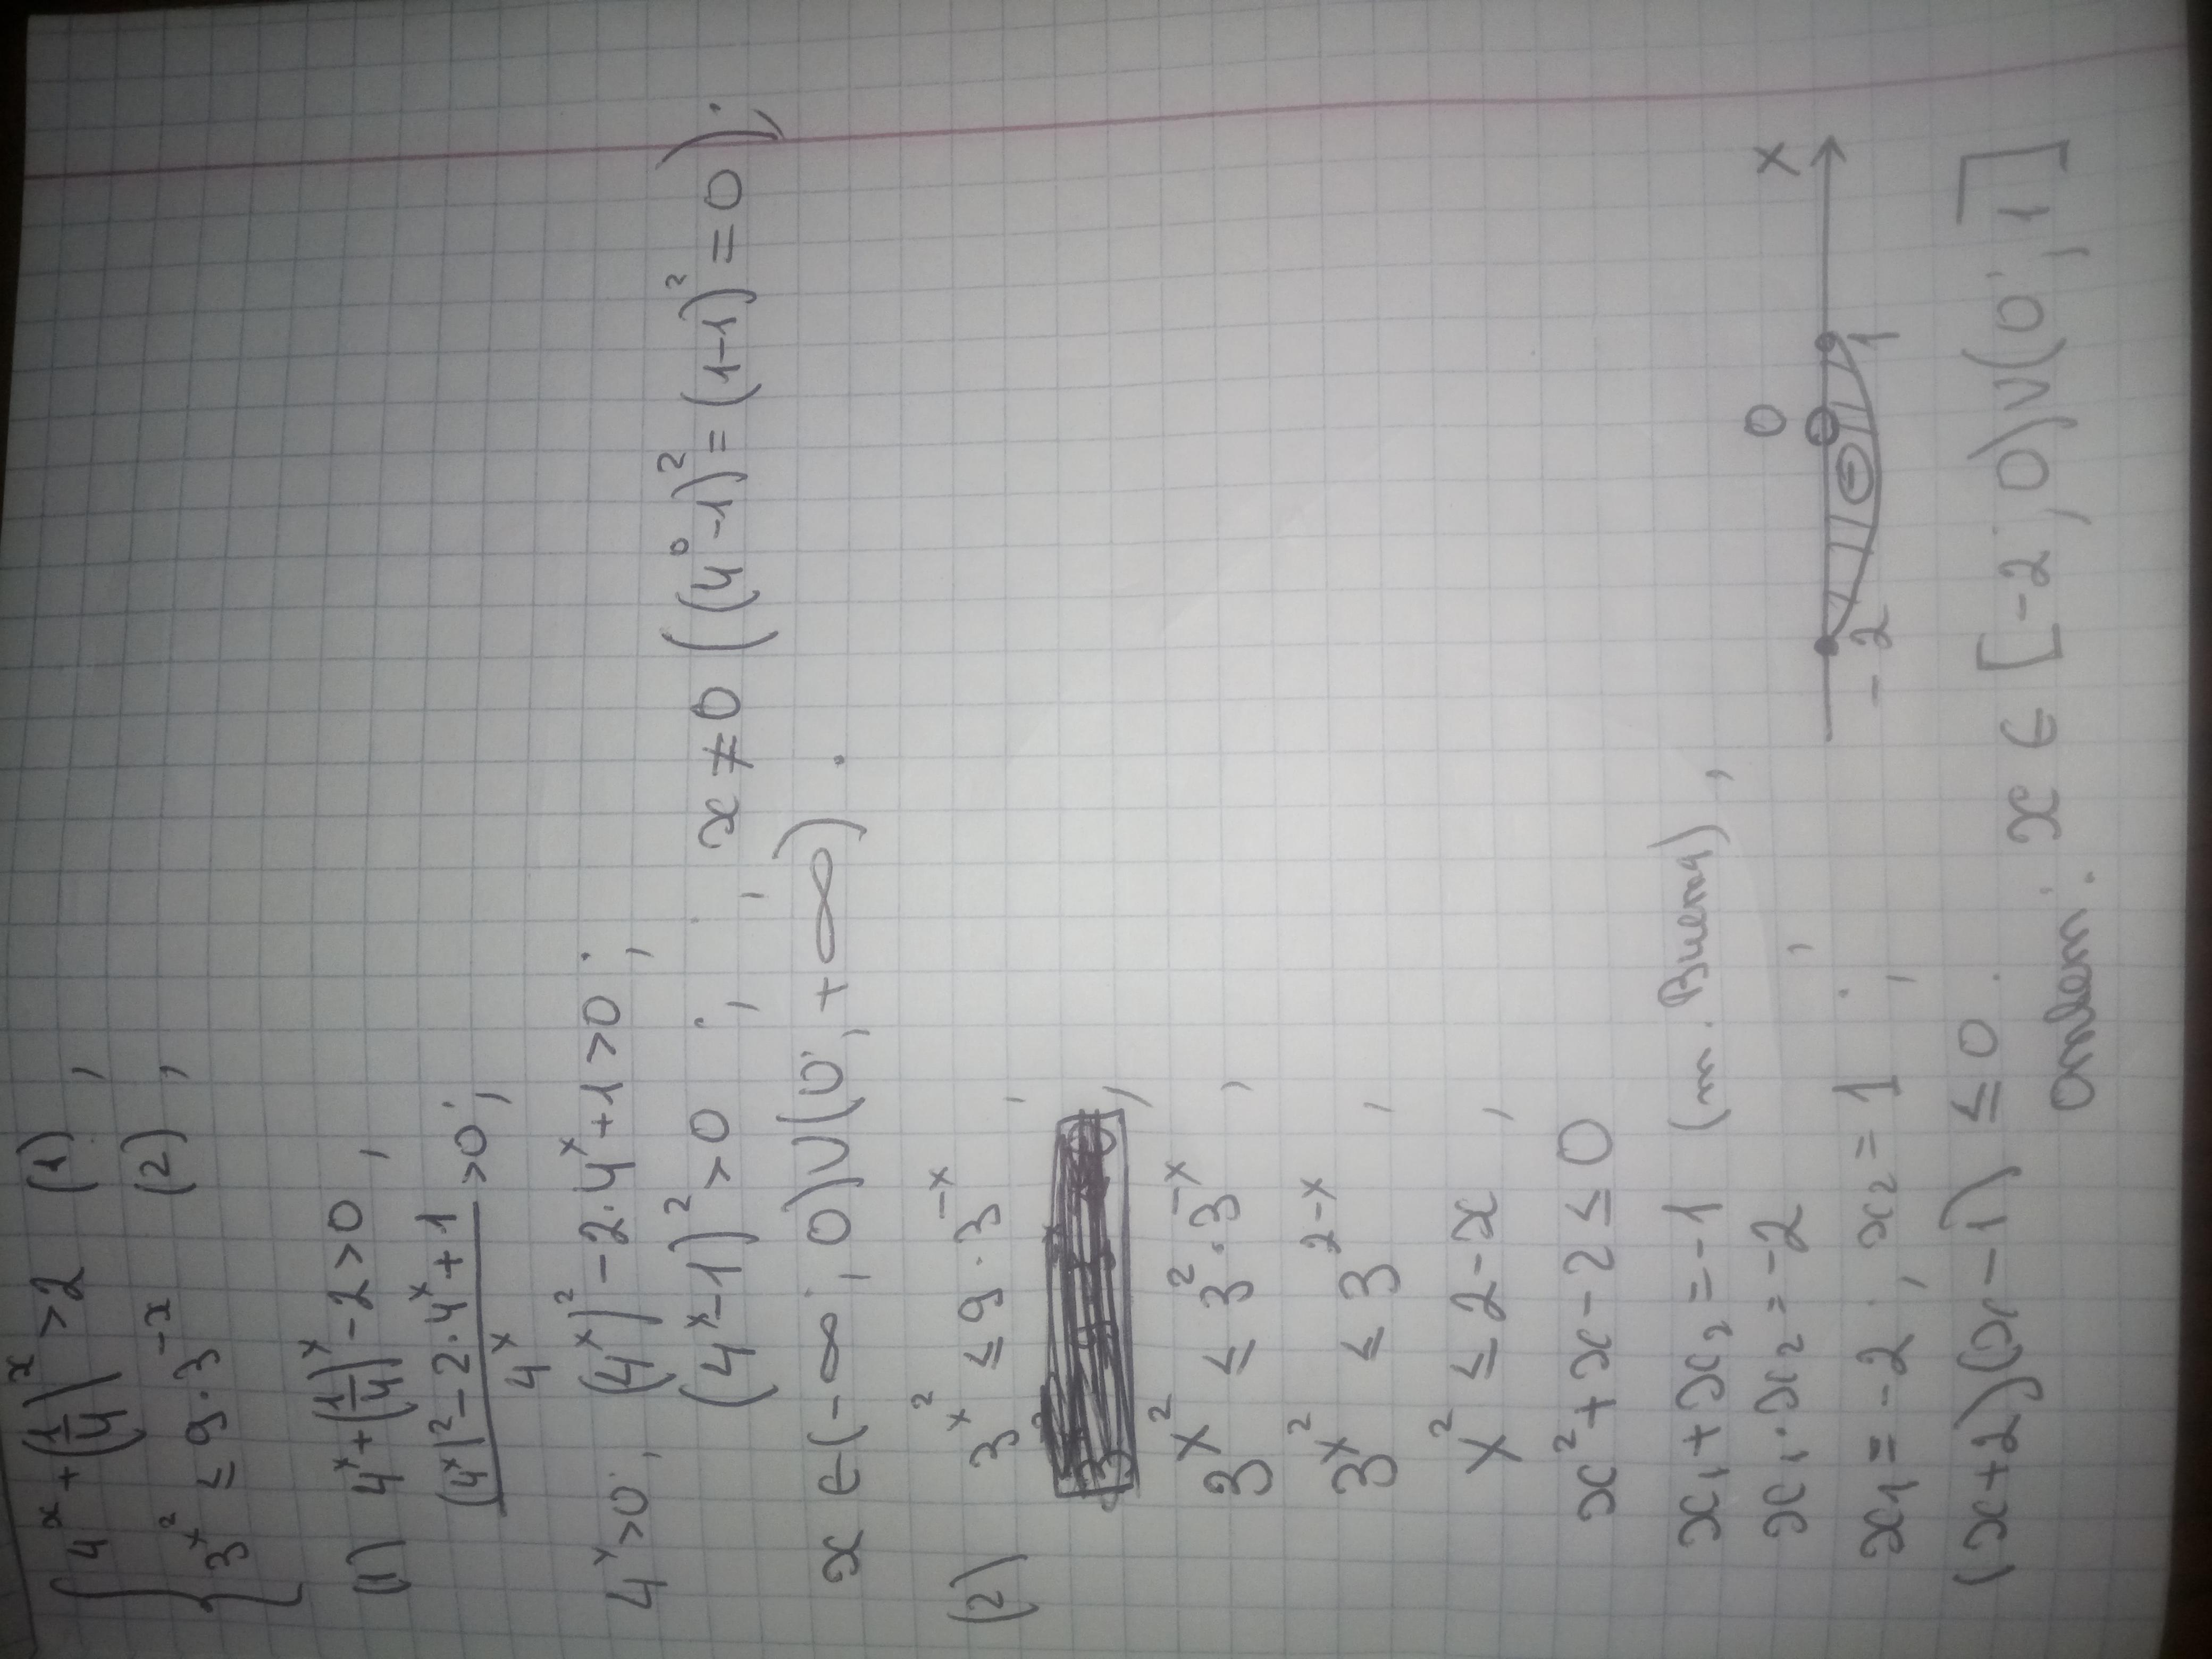 { 4^x + (1/4)^x > 2 (1),
{ 3^x² ≤ 9·3^-x (2),
(1) 4^x + (1/4)^x - 2 > 0,
((4^x)² - 2·4^x + 1)/4^x > 0;
4^x > 0; (4^x)² - 2·4^x + 1 > 0;
(4^x - 1)² > 0; ; x ≠ 0 ((4^0 - 1)² = (1-1)² = 0);
x ∈ (-∞; 0)∪(0; +∞).
(2) 3^x² ≤ 9·3^-x,
3^x² ≤ 3²·3^-x,
3^x² ≤ 3^2-x,
x² ≤ 2-x,
x² + x - 2 ≤ 0
x₁ + x₂ = -1 (т. Виета),
x₁·x₂ = -2,
x₁ = -2; x₂ = 1;
0 x
-2 ⊖ 1
(x+2)(x-1) ≤ 0.
Ответ: x ∈ [-2; 0)∪(0; 1]